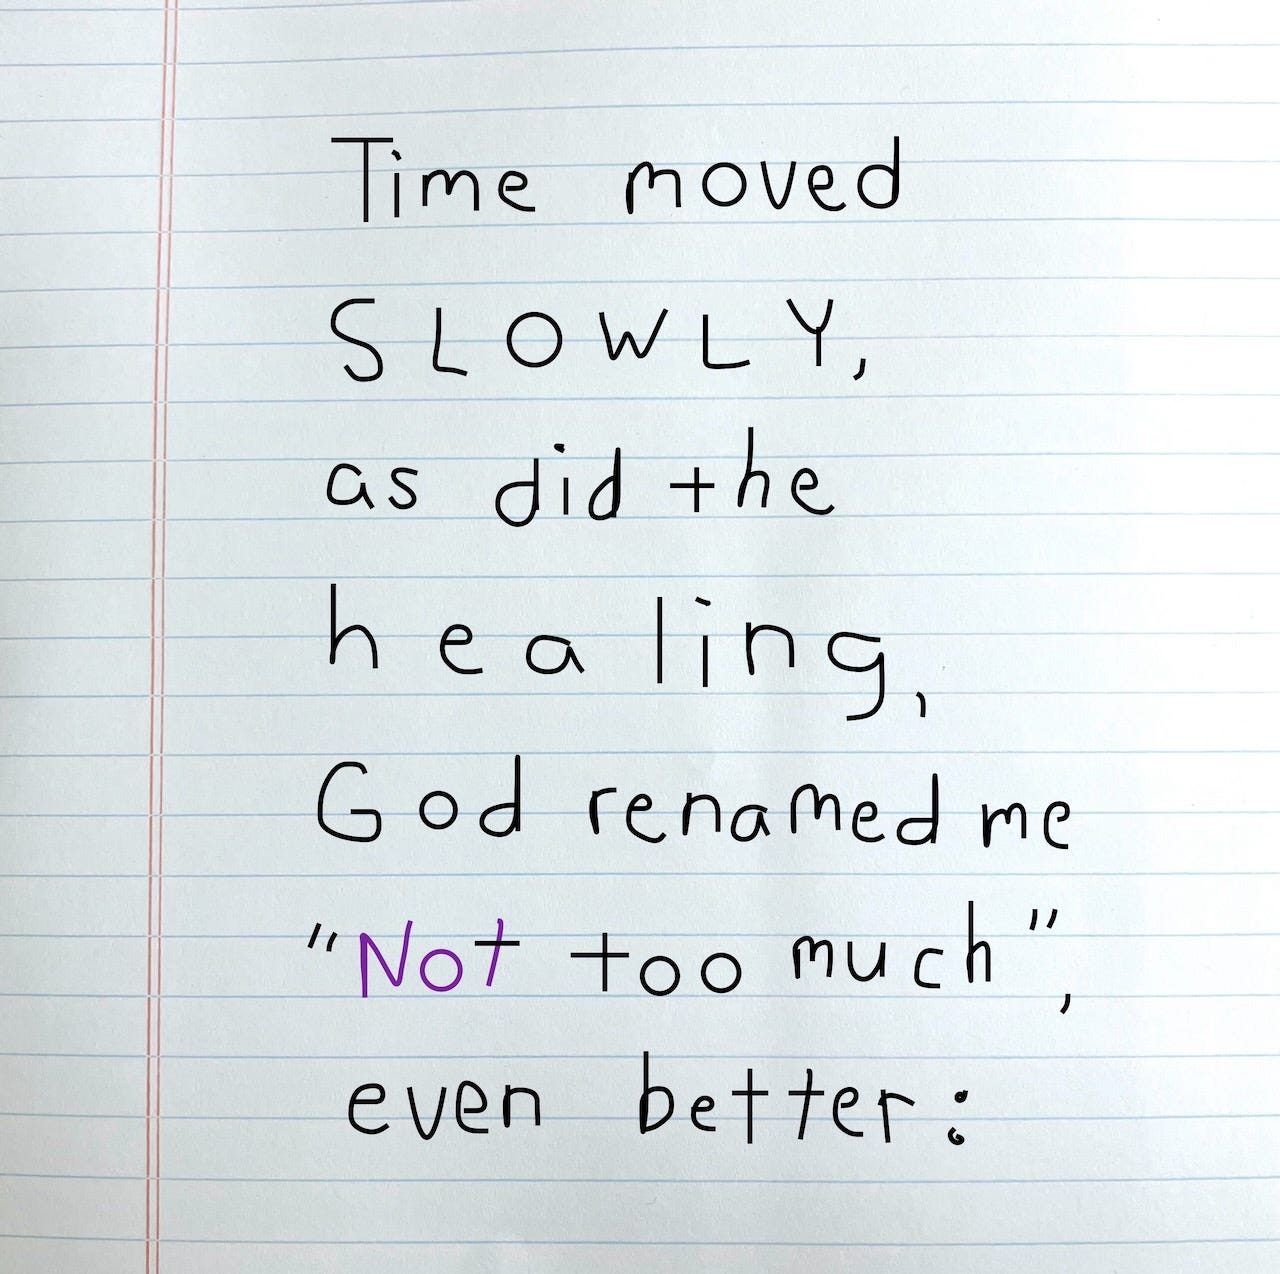 Time moved
SLOWLY,
as did the
healing,
God renamed me
"Not too much",
even better: